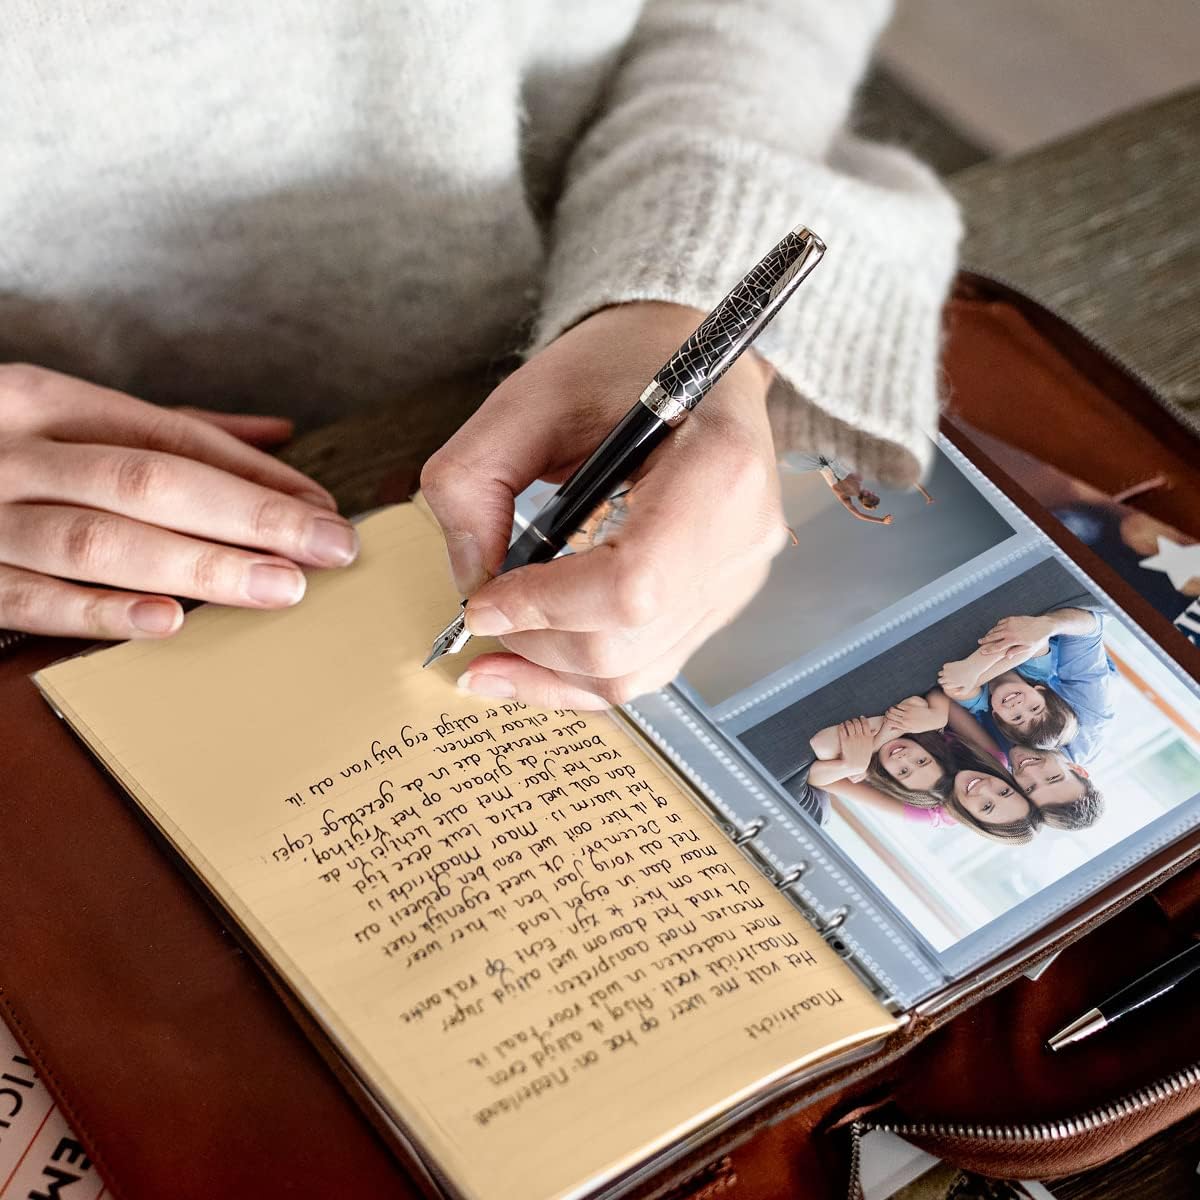 Maastricht
Het valt me weer op hoe on-Nederlands
Maastricht voelt. Alsof ik altijd even
moet nadenken in wat voor taal ik
mensen moet aanspreken.
Ik vind het daarom wel altijd super
leuk om hier te zijn. Echt op vakantie
maar dan in eigen land.
Net als vorig jaar ben ik hier weer
in December. Ik weet eigenlijk niet
of ik hier ooit wel eens ben geweest als
het warm is. Maar Maastricht is
dan ook wel extra leuk deze tijd
van het jaar. Met alle lichtjes in de
bomen, de op het Vrijthof,
alle mensen die in de gezellige cafés
bij elkaar komen.
er altijd erg blij van als ik